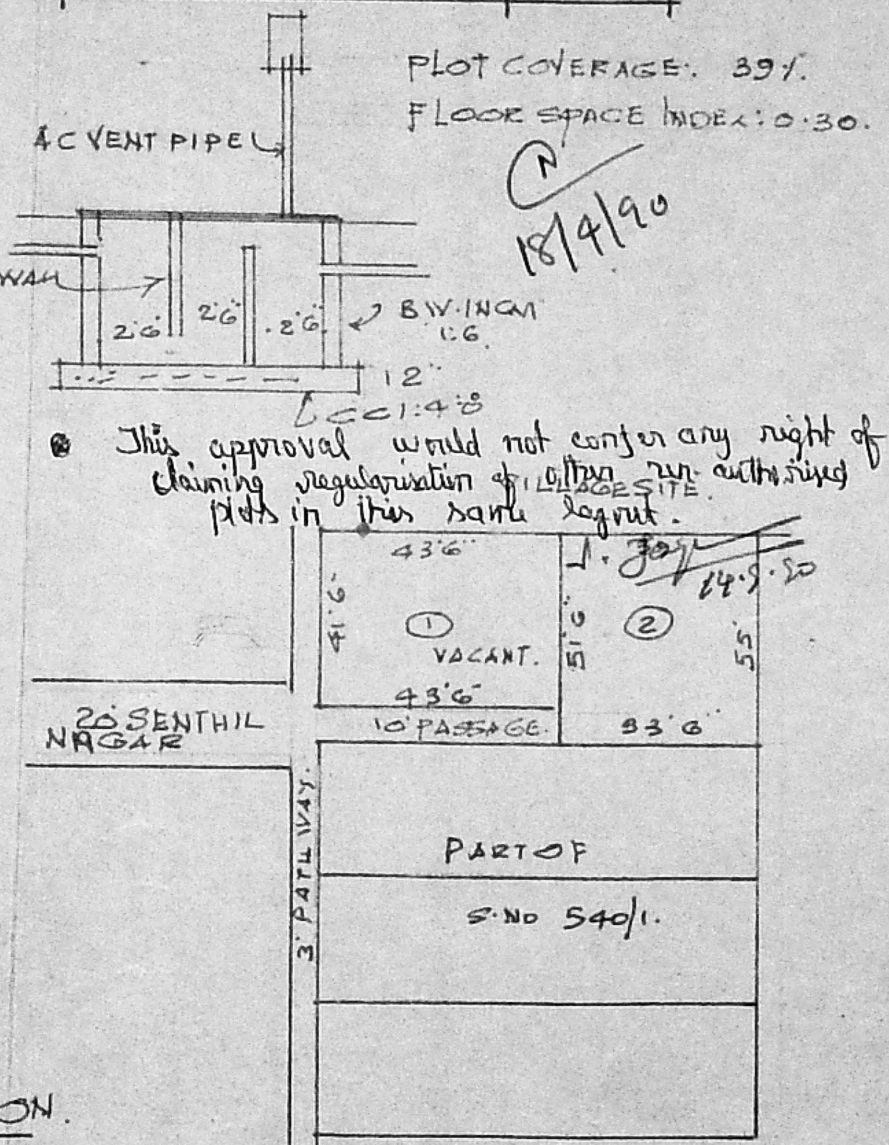 PLOT COVERAGE: 39%.
FLOOR SPACE INDEX: 0.30.
AC VENT PIPE
N
18/4/90
WALL
2'6"
2'6"
2'6"
B.W. IN CM
1:6.
12"
CC 1:4:8
This approval would not confer any right of
claiming regularisation of other un-authorised
plots in this same layout.
VILLAGE SITE.
43'6"
41'6"
1
VACANT.
43'6"
51'6"
2
55'
10' PASSAGE.
33'6"
20' SENTHIL
NAGAR
3' PATHWAY.
PART OF
S.NO 540/1.
ON.